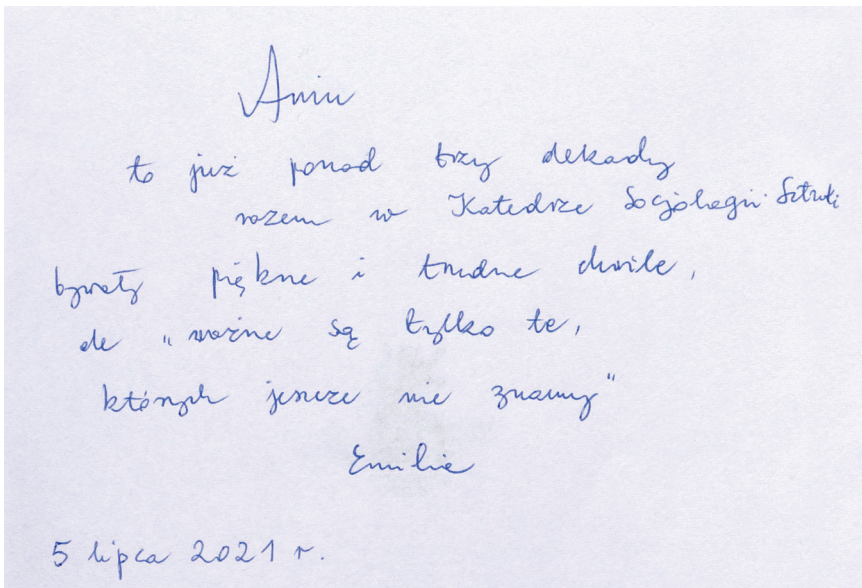 Aniu
to już ponad trzy dekady
razem w Katedrze Socjologii Sztuki
bywały piękne i trudne chwile,
ale "ważne są tylko te,
których jeszcze nie znamy"
Emilia
5 lipca 2021 r.